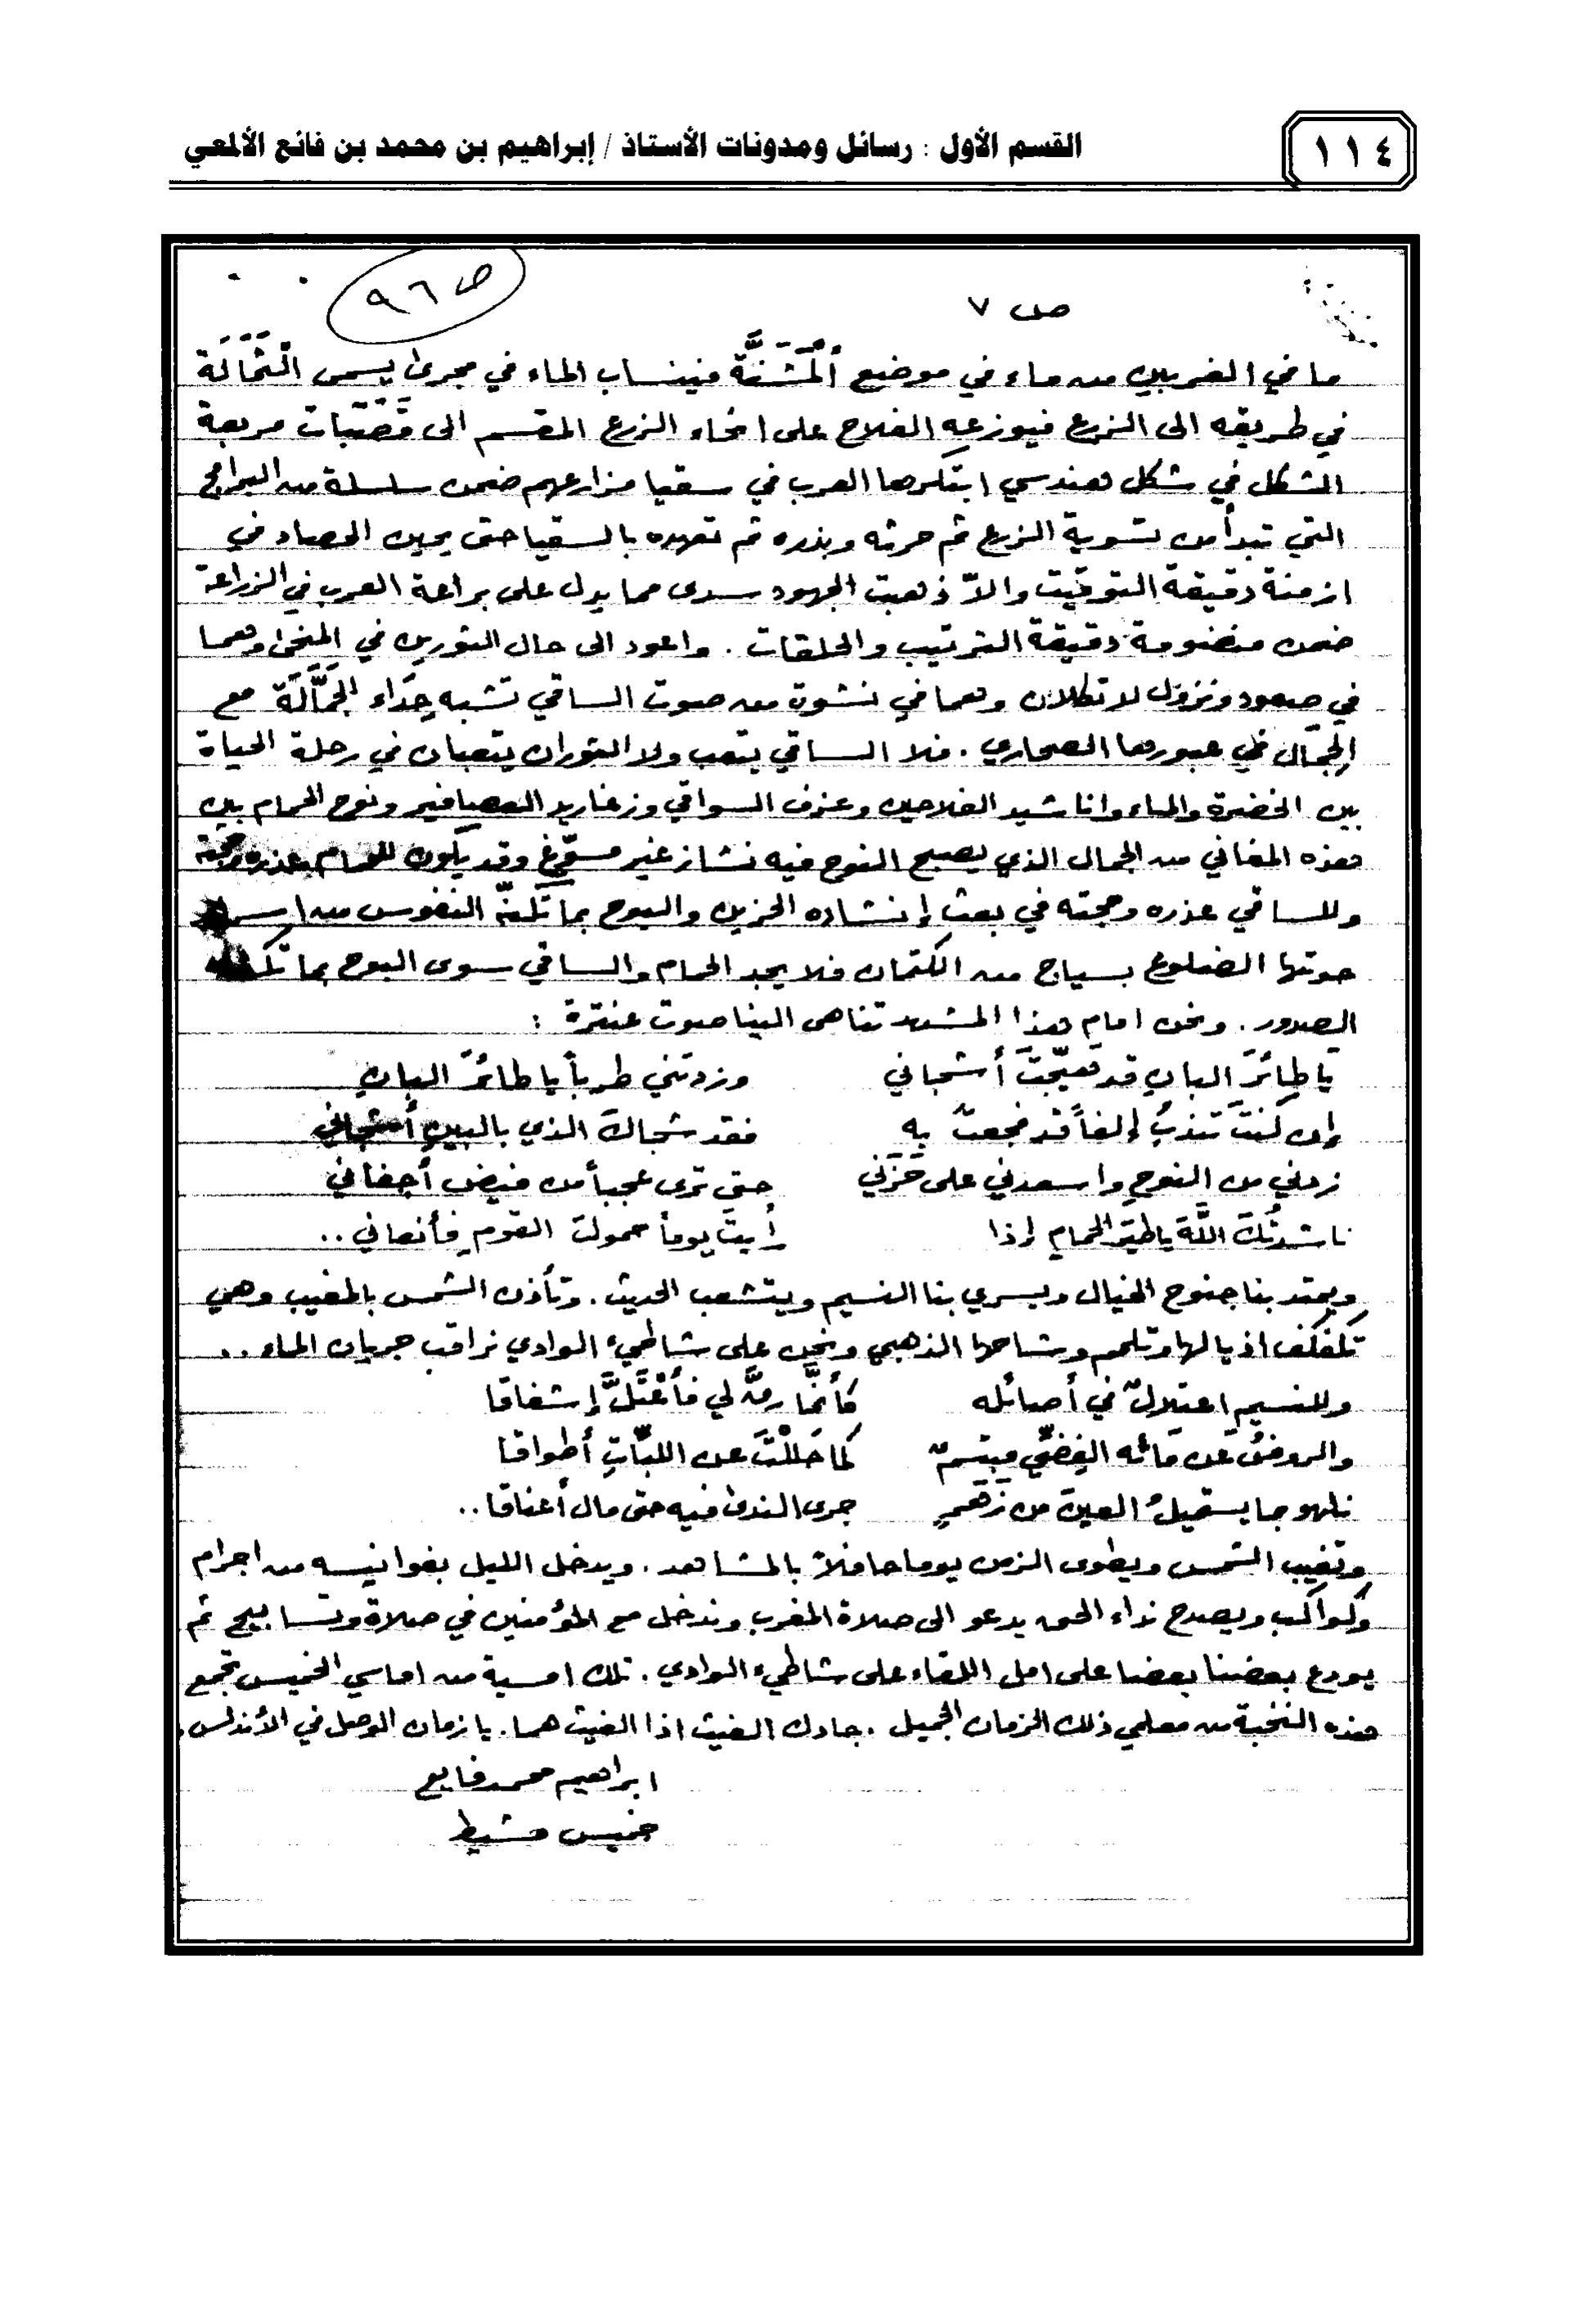 ١١٤
القسم الأول : رسائل ومدونات الأستاذ / إبراهيم بن محمد بن فائع الألمعي
ص ٩٦
ص ٧
ما في الغربين من ماء في موضع اَلْمَشَنَّة فينساب الماء في مجرىً يسمى الثَّمَالَة
في طريقه الى الزرع فيوزعه الفلاح على انحاء الزرع المقسم الى قَصَبَات مربعة
الشكل في شكل هندسي ابتكرها العرب في سقيا مزارعهم ضمن سلسلة من البرامج
التي تبدأ من تسوية الزرع ثم حرثه وبذره ثم تعهده بالسقيا حتى يحين الحصاد في
ازمنة دقيقة التوقيت والاّ ذهبت الجهود سدى مما يدل على براعة العرب في الزراعة
ضمن منضومة دقيقة الترتيب والحلقات . واعود الى حال الثورين في المنحَى وهما
في صعود ونزول لا تكلان وهما في نشوة من صوت الساقي تشبه حِدَاء الجَمَّالَة مع
الجِمَال في عبورها الصحاري . فلا الساقي يتعب ولا الثوران يتعبان في رحلة الحياة
بين الخضرة والماء وانا شيد الفلاحين وعزف السواقي وزغاريد العصافير ونوح الحمام بين
هذه المغاني من الجمال الذي يصبح النوح فيه نشاز غير مسوّغ وقد يكون للحمام عذره وحجته
وللساقي عذره وحجته في بعث إنشاده الحزين والبوح بما تكنّه النفوس من
حوتها الضلوع بسياج من الكتمان فلا يجد الحمام والساقي سوى البوح بما
الصدور . ونحن امام هذا المشهد تناهى الينا صوت عنترة :
يَا طِائرَ البانِ قد هيّجتَ أشجاني وزدتني طرباً يا طائرَ البانِ
إن كنتَ تندبُ إلفاً قد فجعتَ به فقد شجاكَ الذي بالبينِ أشجاني
زدني من النوحِ واسعدني على حَزَني حتى ترى عجباً من فيض أجفاني
ناشدتُكَ اللَّهَ يا طيرَ الحمامِ إذا رأيتَ يوماً حمولَ القومِ فأنعاني ..
ويمتد بنا جنوح الخيال ويسري بنا النسيم ويتشعب الحديث . وتأذن الشمس بالمغيب وهي
تكفكف اذيالها وتلمم وشاحها الذهبي ونحن على شاطيء الوادي نراقب جريان الماء ..
وللنسيمِ اعتلالٌ في أصائله كأنَّما رقَّ لي فَأعْتَلَّ إشفاقا
والروضُ عن مَائه الفِضّيِّ مبتسمٌ كما حَلَلْتَ عن اللبّاتِ أطواقا
نلهو بما يستميلُ العينَ من زَهَرٍ جرى الندى فيه حتى مال أعناقا ..
وتغيب الشمس ويطوى الزمن يوما حافلاً بالمشاهد . ويدخل الليل بفوانيسه من اجرام
وكواكب ويصدح نداء الحق يدعو الى صلاة المغرب وندخل مع المؤمنين في صلاة وتسابيح ثم
يودع بعضنا بعضا على امل اللقاء على شاطيء الوادي . تلك امسية من اماسي الخميس تجمع
هذه النخبة من معلمي ذلك الزمان الجميل . جادك الغيث اذا الغيث هما . يا زمان الوصل في الأندلس .
ابراهيم محمد فايع
خميس مشيط